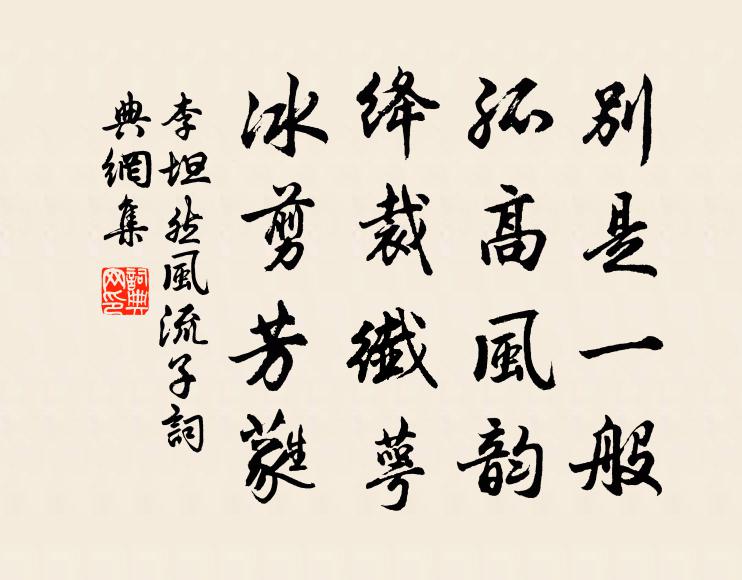 别是一般
孤高風韵
绛裁纖萼
冰剪芳蕤
李坦然風流子詞
典網集
詞典網印